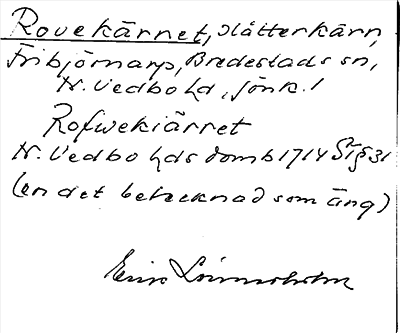 Rovekärret, slåtterkärr,
Fribjörnarp, Bredestads sn,
N. Vedbo hd, Jönk. l
Rofwekiärret
N. Vedbo hds domb 1714 St § 31
(en det betecknad som äng)
Eric